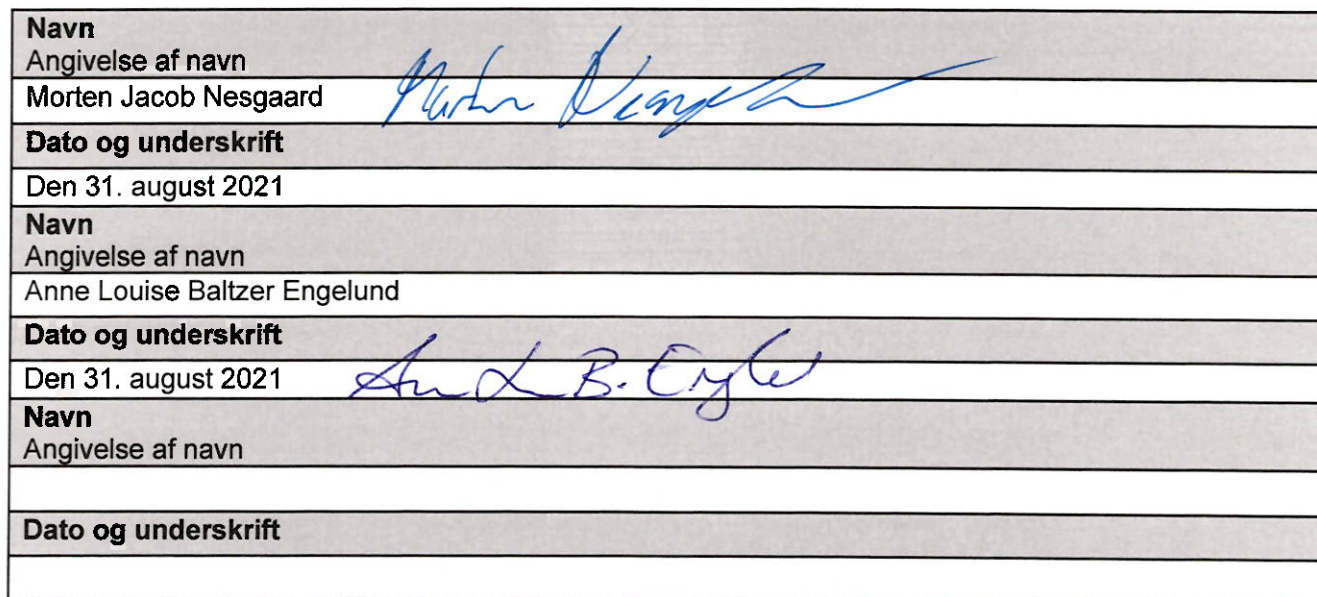 Navn
Angivelse af navn
Morten Jacob Nesgaard
Dato og underskrift
Den 31. august 2021
Navn
Angivelse af navn
Anne Louise Baltzer Engelund
Dato og underskrift
Den 31. august 2021
Navn
Angivelse af navn
Dato og underskrift